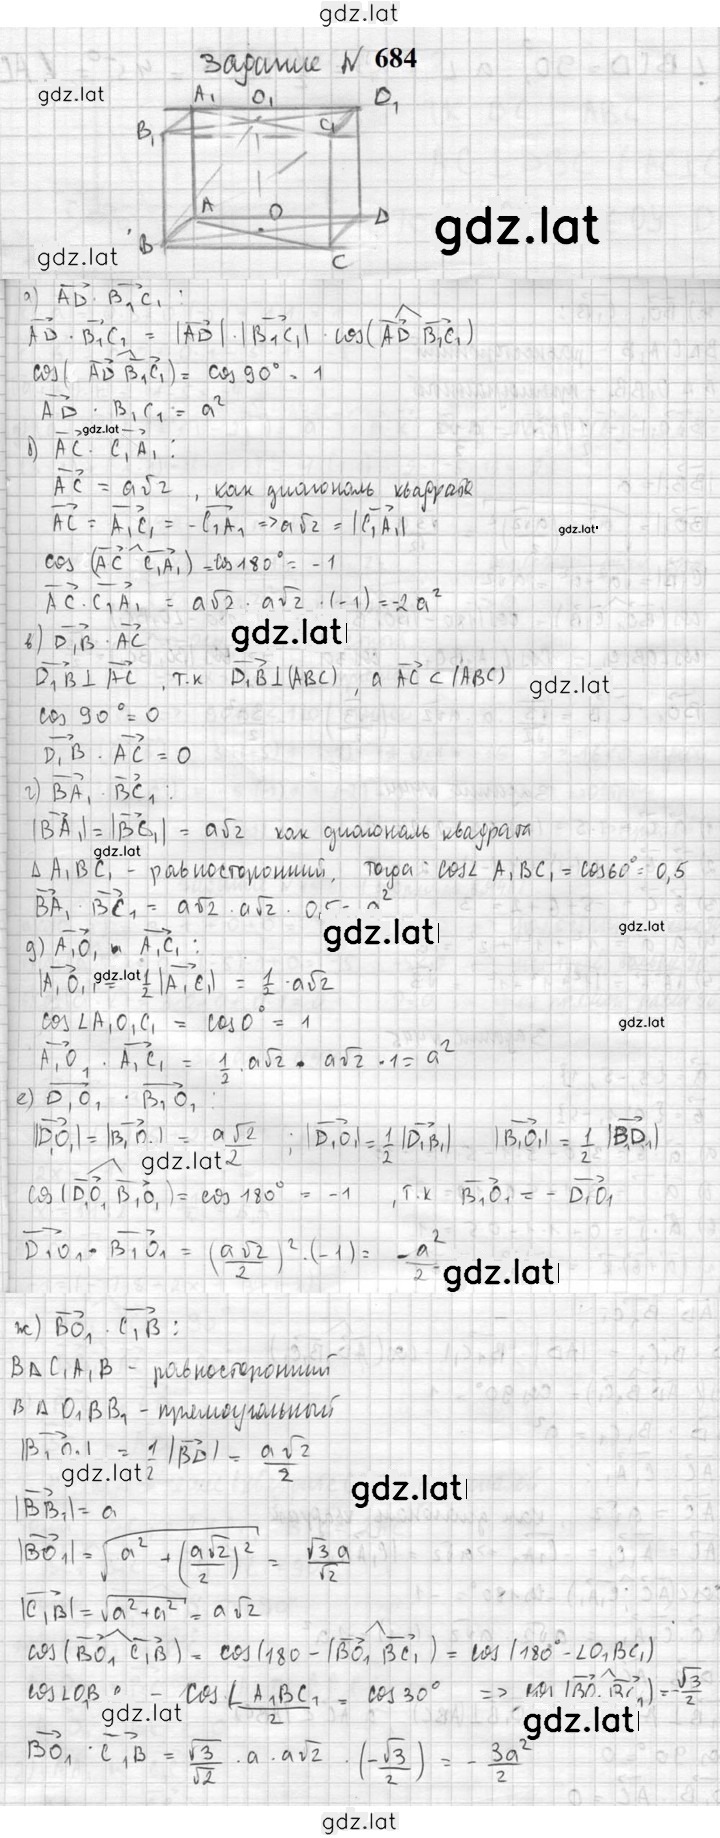 gdz.lat
Задание N 684
gdz.lat
A₁ O₁ D₁
B₁ C₁
A O D
gdz.lat
B C
gdz.lat
а) AD · B₁C₁ :
AD · B₁C₁ = |AD| · |B₁C₁| · cos(AD B₁C₁)
cos( AD B₁C₁) = cos 90° = 1
AD · B₁C₁ = a²
gdz.lat
б) AC · C₁A₁ :
AC = a√2 , как диагональ квадрата
AC = A₁C₁ = -C₁A₁ => a√2 = |C₁A₁|
gdz.lat
cos (AC C₁A₁) = cos 180° = -1
AC · C₁A₁ = a√2 · a√2 · (-1) = -2a²
gdz.lat
в) D₁B · AC
D₁B ⊥ AC , т.к D₁B ⊥ (ABC) , а AC ⊂ (ABC)
gdz.lat
cos 90° = 0
D₁B · AC = 0
г) BA₁ · BC₁ :
|BA₁| = |BC₁| = a√2 как диагональ квадрата
gdz.lat
Δ A₁BC₁ - равносторонний, тогда: cos∠ A₁BC₁ = cos60° = 0,5
BA₁ · BC₁ = a√2 · a√2 · 0,5 = a²
gdz.lat
gdz.lat
д) A₁O₁ и A₁C₁ :
gdz.lat
|A₁O₁| = 1/2 |A₁C₁| = 1/2 · a√2
cos∠A₁O₁C₁ = cos0° = 1
gdz.lat
A₁O₁ · A₁C₁ = 1/2 · a√2 · a√2 · 1 = a²
е) D₁O₁ · B₁O₁ :
|D₁O₁| = |B₁O₁| = a√2/2 ; |D₁O₁| = 1/2 |D₁B₁| |B₁O₁| = 1/2 |B₁D₁|
gdz.lat
cos(D₁O₁ B₁O₁) = cos 180° = -1 , т.к B₁O₁ = - D₁O₁
D₁O₁ · B₁O₁ = (a√2/2)² · (-1) = -a²/2
gdz.lat
ж) BO₁ · C₁B :
В Δ C₁A₁B - равносторонний
В Δ O₁BB₁ - прямоугольный
|B₁O₁| = 1/2 |BD| = a√2/2
gdz.lat
gdz.lat
|BB₁| = a
|BO₁| = √(a² + (a√2/2)²) = √3a/√2
|C₁B| = √(a²+a²) = a√2
cos(BO₁ C₁B) = cos(180 - (BO₁ BC₁) = cos(180° - ∠O₁BC₁)
= cos(∠A₁BC₁/2 = cos 30° =>
gdz.lat
gdz.lat
BO₁ · C₁B = √3/√2 · a · a√2 · (-√3/2) = - 3a²/2
gdz.lat